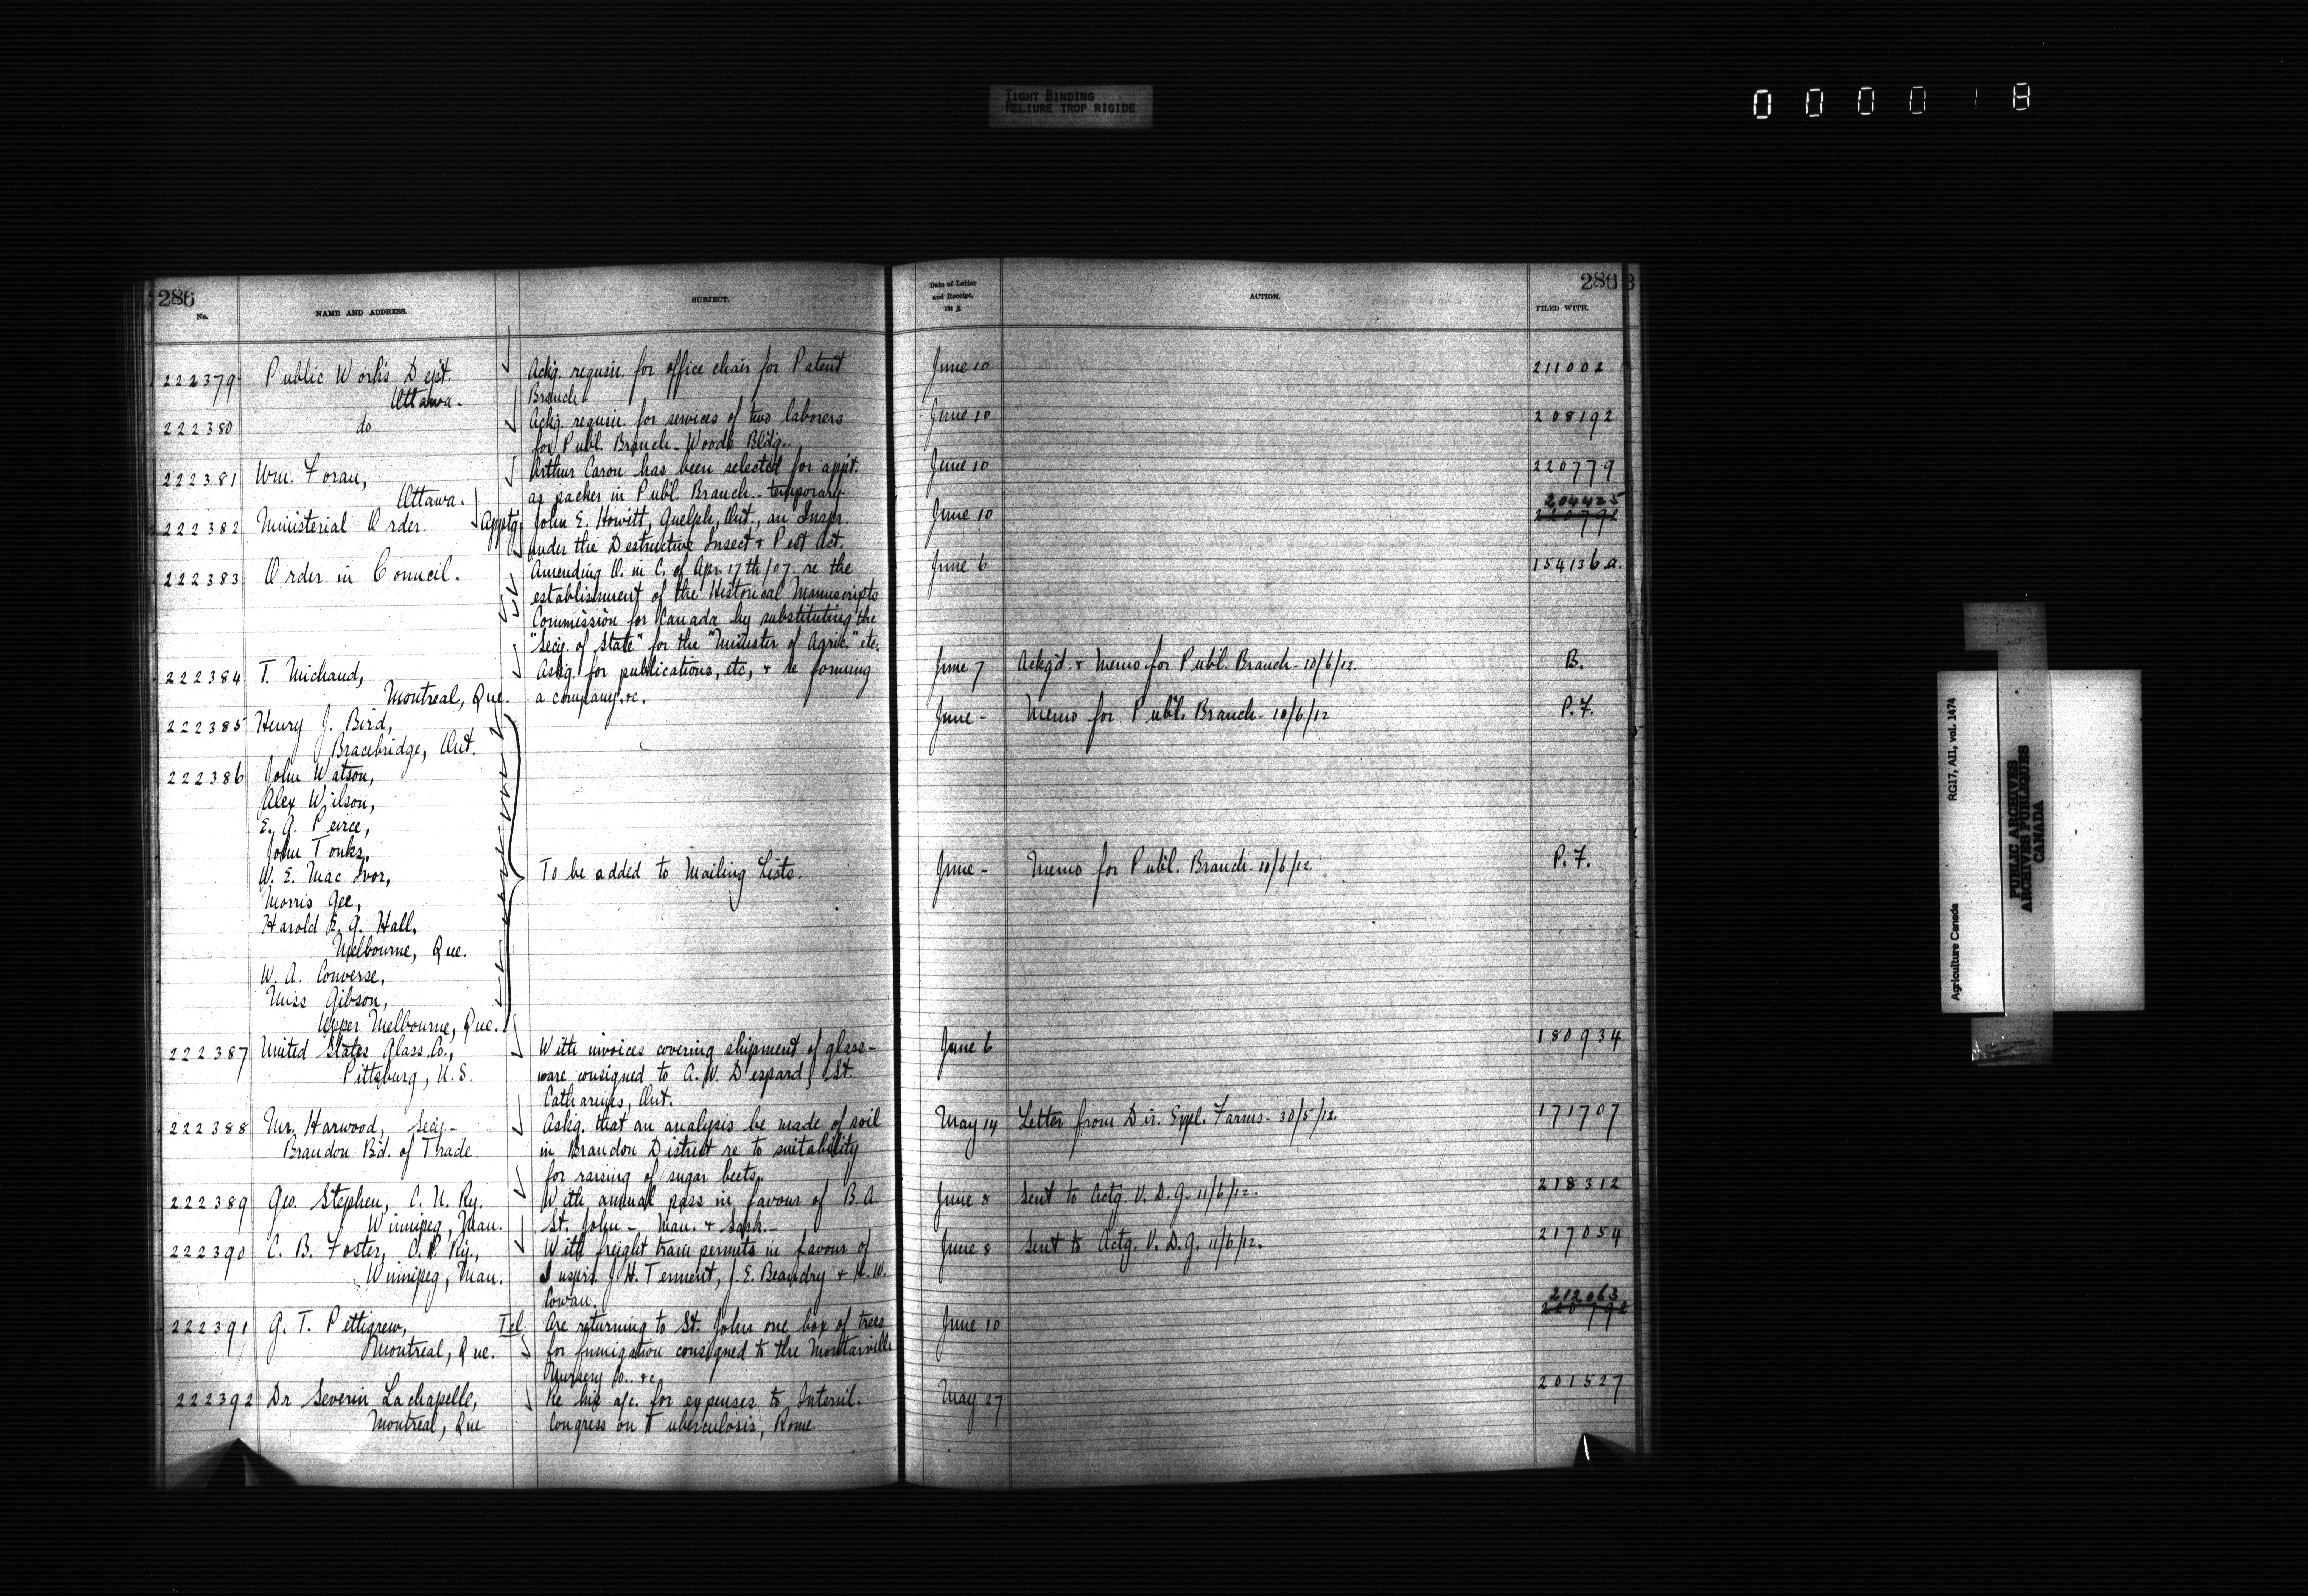 TIGHT BINDING
RELIURE TROP RIGIDE
000018
286
No.
NAME AND ADDRESS.
SUBJECT.
222379 Public Work's Dept. Ackg. requisn. for office chair for Patent
Ottawa. Branch
222380 do Ackg. requisn. for services of two laborers
for Publ. Branch - Woods Bldg.
222381 Wm. Foran, Arthur Caron has been selected for appt.
Ottawa. as packer in Publ. Branch - temporary
222382 Ministerial Order. Apptg. John E. Howitt, Guelph, Ont., an Inspr.
under the Destructive Insect & Pest Act.
222383 Order in Council. Amending O. in C. of Apr. 17th/07 re the
establishment of the Historical Manuscripts
Commission for Canada by substituting the
"Secy. of State" for the "Minister of Agric." etc.
222384 T. Michaud, Askg. for publications, etc, & re forming
Montreal, Que. a company, &c.
222385 Henry J. Bird,
Bracebridge, Ont.
222386 John Watson,
Alex Wilson,
E. A. Peirce,
John Tonks,
W. E. Mac Ivor, To be added to Mailing Lists.
Morris Gee,
Harold E. G. Hall,
Melbourne, Que.
W. A. Converse,
Miss Gibson,
Upper Melbourne, Que.
222387 United States Glass Co., With invoices covering shipment of glass-
Pittsburg, U.S. ware consigned to A. W. Despard, St.
Catharines, Ont.
222388 Mr. Harwood, Secy.- Askg. that an analysis be made of soil
Brandon Bd. of Trade. in Brandon District re to suitability
for raising of sugar beets.
222389 Geo. Stephen, C. N. Ry. With annual pass in favour of B. A.
Winnipeg, Man. St. John - Man. & Sask. -
222390 C. B. Foster, C. P. Ry., With freight train permits in favour of
Winnipeg, Man. Insprs. J. H. Tennent, J. E. Beaudry & H. W.
Cowan.
222391 G. T. Pettigrew, Tel. Are returning to St. John one box of trees
Montreal, Que. for fumigation consigned to the Montarville
Nursery Co. &c
222392 Dr Severin Lachapelle, Re his a/c. for expenses to Internl.
Montreal, Que Congress on Tuberculosis, Rome
Date of Letter
and Receipt,
191 2
ACTION.
286
FILED WITH.
June 10 211002
June 10 208192
June 10 220779
204425
June 10 220792
June 6 154136 a.
June 7 Ackg'd. & Memo for Publ. Branch - 10/6/12. B.
June - Memo for Publ. Branch - 10/6/12 P.F.
June - Memo for Publ. Branch - 10/6/12. P.F.
June 6 180934
May 14 Letter from Dir. Expl. Farms - 30/5/12. 171707
June 8 Sent to Actg. V. D. G. 11/6/12. 218312
June 8 Sent to Actg. V. D. G. 11/6/12. 217054
212063
June 10 220792
May 27 201527
Agriculture Canada RG17, AII, vol. 1474
PUBLIC ARCHIVES
ARCHIVES PUBLIQUES
CANADA